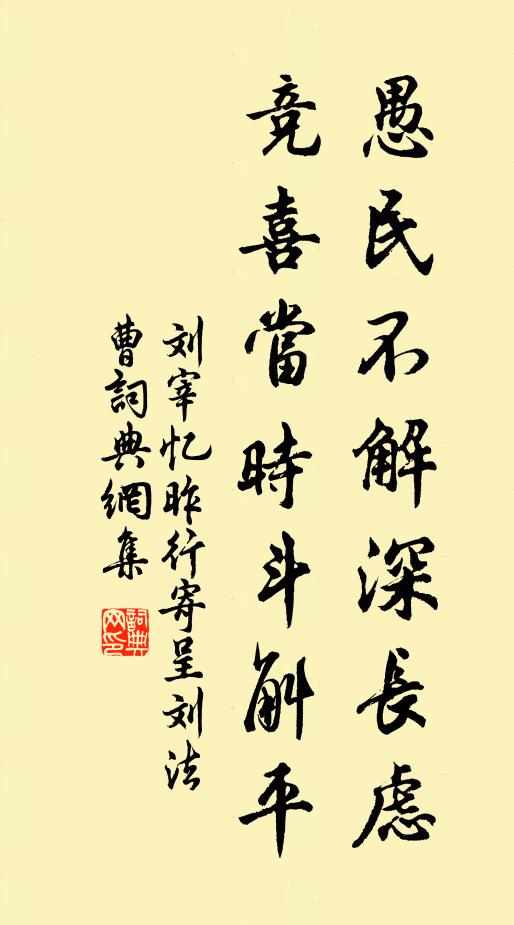 愚民不解深長慮
竞喜當時斗斛平
刘宰忆昨行寄呈刘法
曹詞典網集
詞典
网印